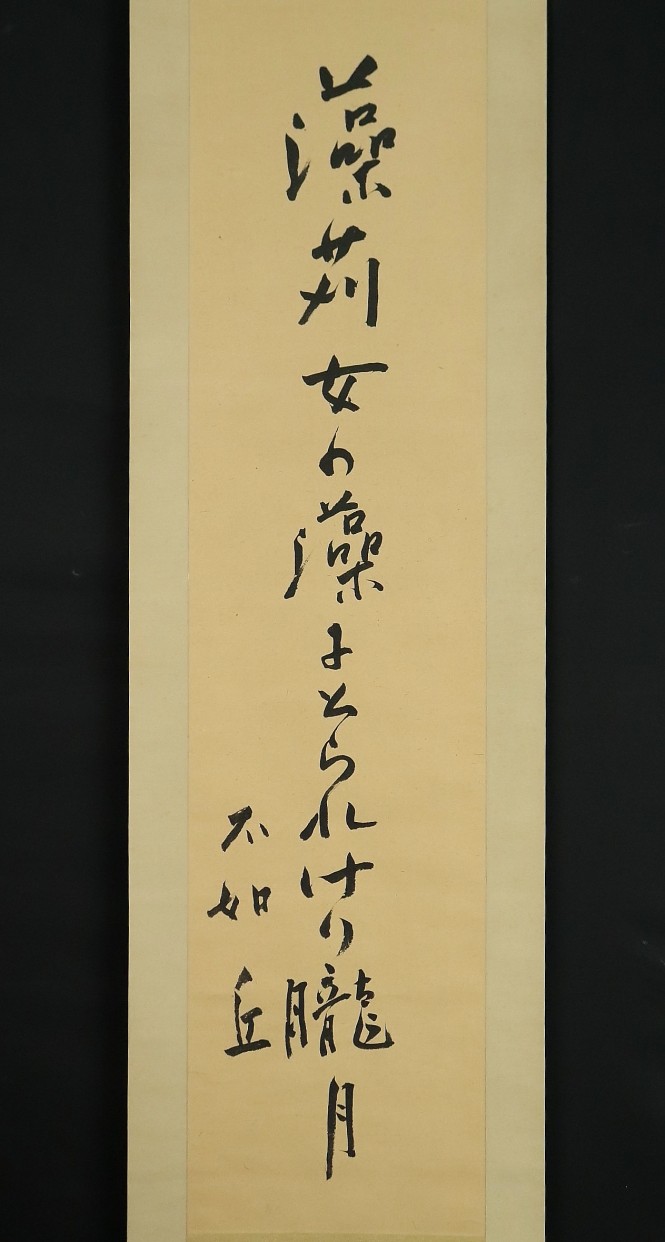 藻苅女の藻にとられけり朧月
不如丘